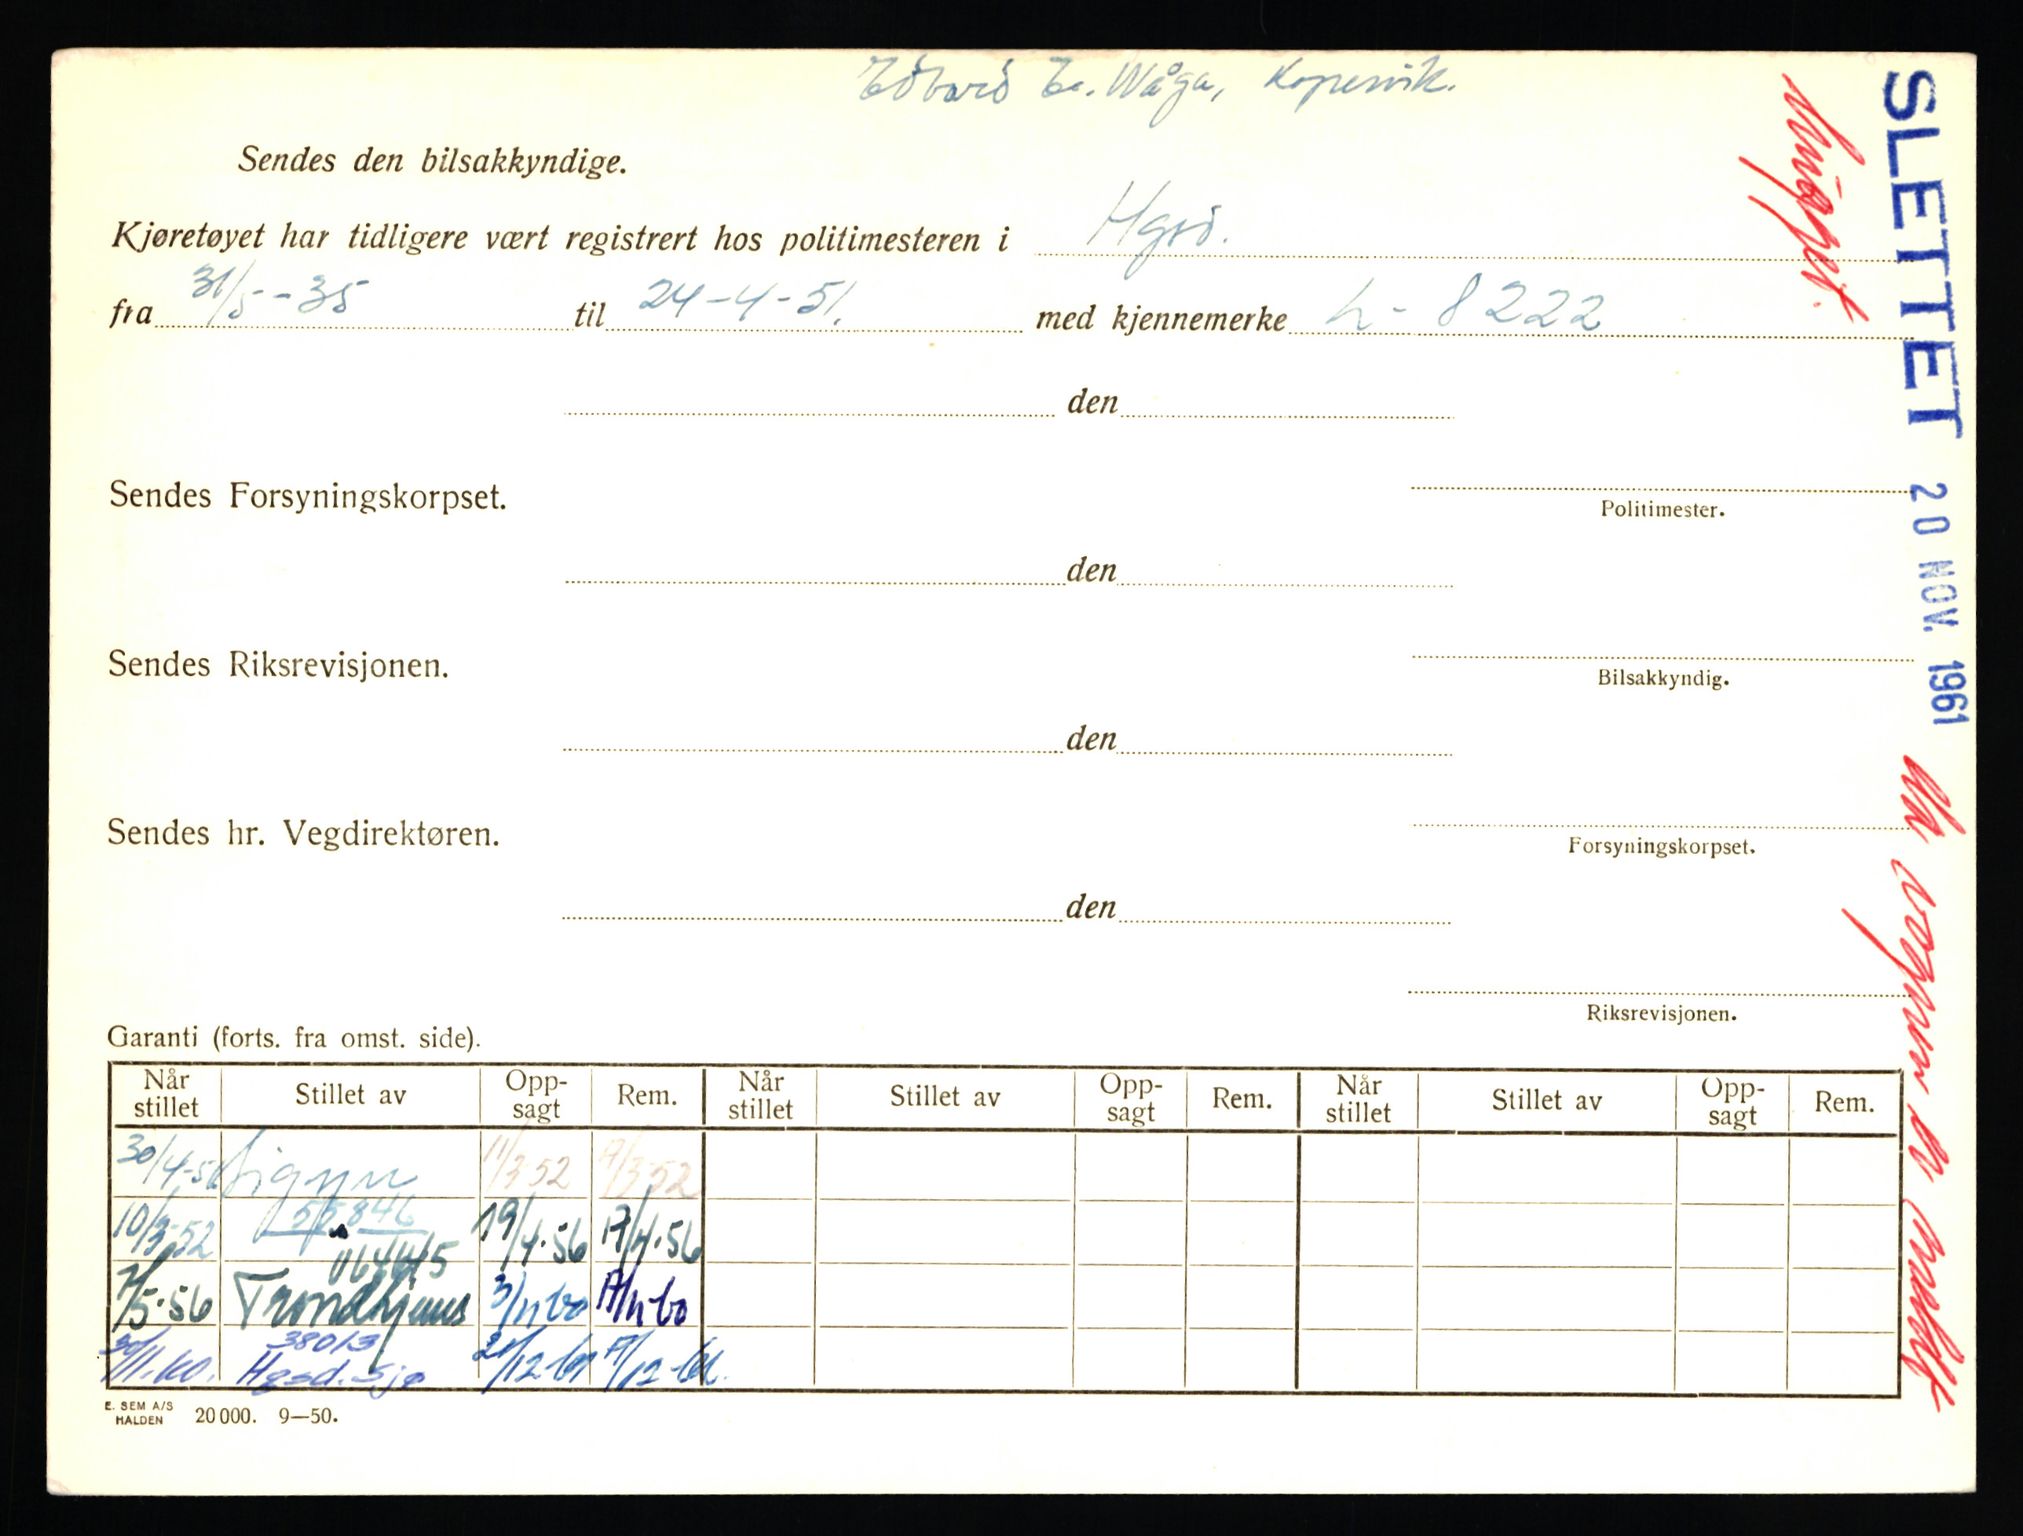 Edvard E. Våga, Kopervik.
Sendes den bilsakkyndige.
Kjøretøyet har tidligere vært registrert hos politimesteren i Hgsd.
fra 31/5-35 til 24-4-51. med kjennemerke L-8222
den
Sendes Forsyningskorpset.
Politimester.
den
Sendes Riksrevisjonen.
Bilsakkyndig.
den
Sendes hr. Vegdirektøren.
Forsyningskorpset.
den
Riksrevisjonen.
Garanti (forts. fra omst. side).
Når stillet Stillet av Opp-sagt Rem. Når stillet Stillet av Opp-sagt Rem. Når stillet Stillet av Opp-sagt Rem.
30/4-51 Sigyn 11/3-52 17/3-52
10/3-52 55846 19/4-56 17/4-56
064645
7/5-56 Trondhjems 3/11-60 17/11-60
38013
30/11.60. Hgsd. Sjø 21/12-61 17/12-61.
E. SEM A/S
HALDEN 20000. 9—50.
SLETTET 20 NOV. 1961